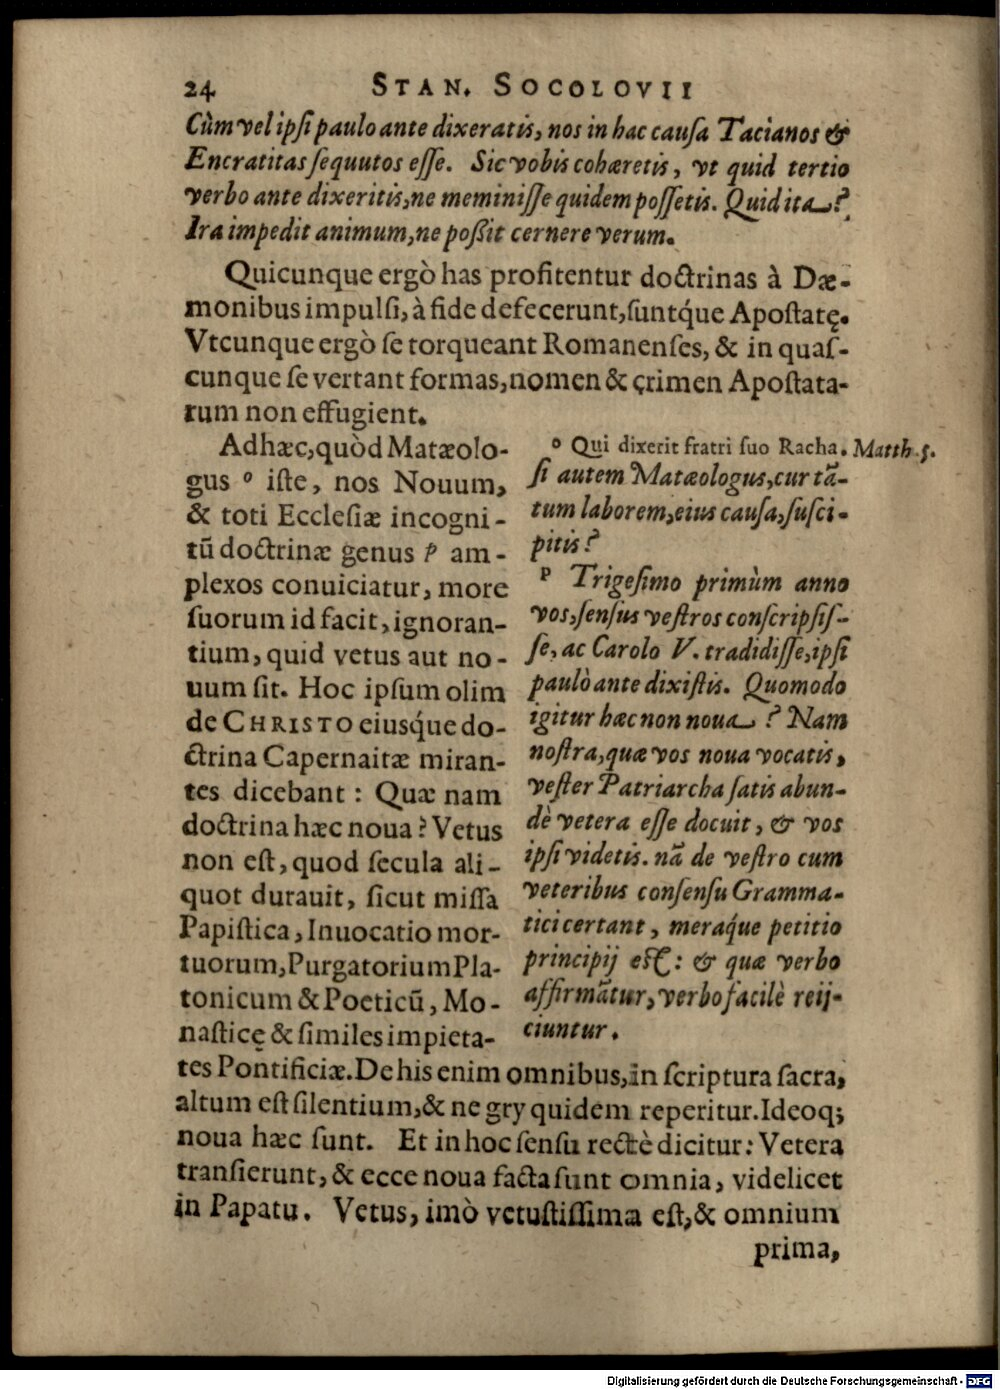 24 STAN. SOCOLOVII
Cùm vel ipſi paulo ante dixeratis, nos in hac cauſa Tacianos &
Encratitas ſequutos eſſe. Sic vobis cohæretis, vt quid tertio
verbo ante dixeritis, ne meminiſſe quidem poſſetis. Quid ita?
Ira impedit animum, ne poßit cernere verum.
Quicunque ergò has profitentur doctrinas à Dæ-
monibus impulſi, à fide defecerunt, ſuntq́ue Apoſtatę.
Vtcunque ergò ſe torqueant Romanenſes, & in quaſ-
cunque ſe vertant formas, nomen & çrimen Apoſtata-
rum non effugient.
Adhæc, quòd Matæolo-
gus o iſte, nos Nouum,
& toti Eccleſiæ incogni-
tū doctrinæ genus p am-
plexos conuiciatur, more
ſuorum id facit, ignoran-
tium, quid vetus aut no-
uum ſit. Hoc ipſum olim
de CHRISTO eiusq́ue do-
ctrina Capernaitæ miran-
tes dicebant: Quæ nam
doctrina hæc noua? Vetus
non eſt, quod ſecula ali-
quot durauit, ſicut miſſa
Papiſtica, Inuocatio mor-
tuorum, Purgatorium Pla-
tonicum & Poeticū, Mo-
naſticę & ſimiles impieta-
o Qui dixerit fratri ſuo Racha. Matth. 5.
ſi autem Matæologus, cur tā-
tum laborem, eius cauſa, ſuſci-
pitis?
p Trigeſimo primùm anno
vos, ſenſus veſtros conſcripſiſ-
ſe, ac Carolo V. tradidiſſe, ipſi
paulò ante dixiſtis. Quomodo
igitur hæc non noua? Nam
noſtra, quæ vos noua vocatis,
veſter Patriarcha ſatis abun-
dè vetera eſſe docuit, & vos
ipſi videtis. nā de veſtro cum
veteribus conſenſu Gramma-
tici certant, meraq́ue petitio
principij eſt: & quæ verbo
affirmātur, verbo facilè reij-
ciuntur.
tes Pontificiæ. De his enim omnibus, in ſcriptura ſacra,
altum eſt ſilentium, & ne gry quidem reperitur. Ideoq;
noua hæc ſunt. Et in hoc ſenſu rectè dicitur: Vetera
tranſierunt, & ecce noua facta ſunt omnia, videlicet
in Papatu. Vetus, imò vetuſtiſſima eſt, & omnium
prima,
Digitalisierung gefördert durch die Deutsche Forschungsgemeinschaft - DFG